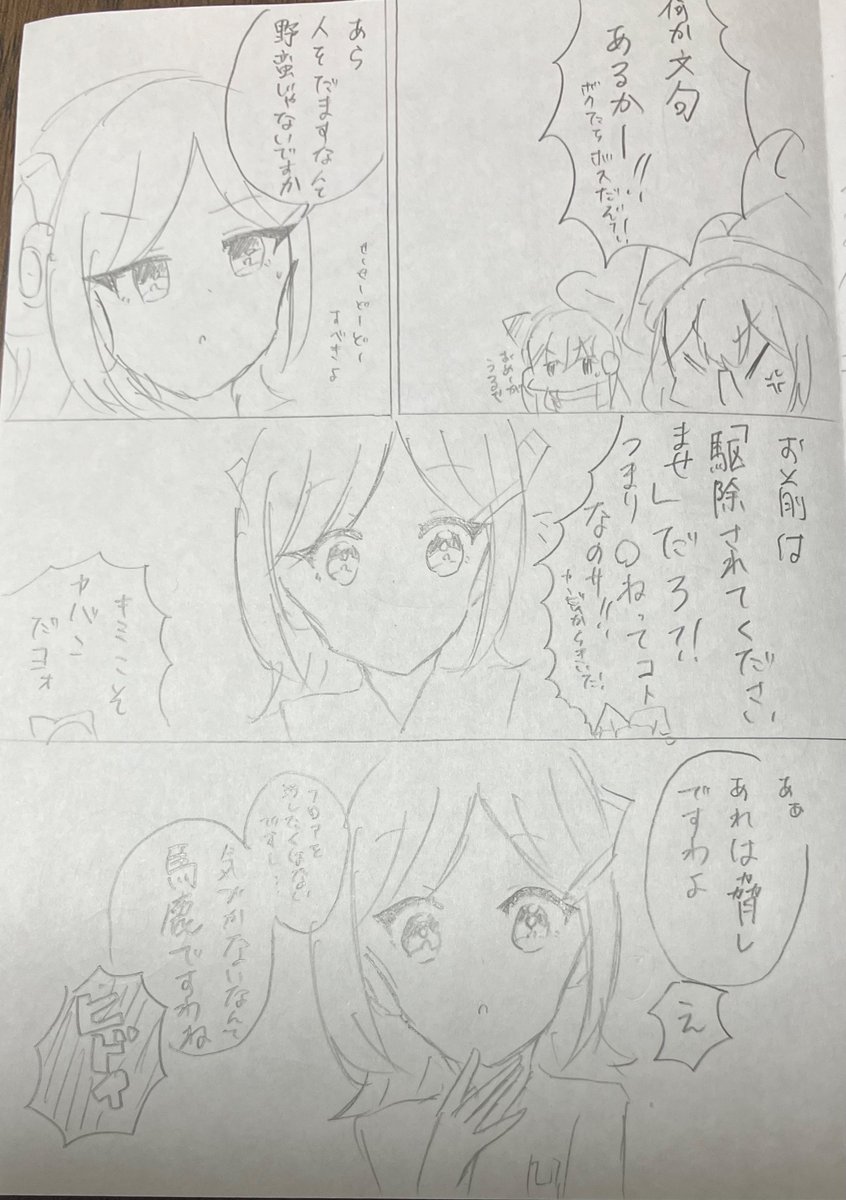 何か文句
あるかー!!
ボクたちボスだぞ!!
おめーが
うるせ
あら
人をだますなんて
野蛮じゃないですか
せーせーどーどー
すべきよ
お前は
「駆除されてください
ませ」だろ?!
つまり〇ねってコト
なのサ!!
キミこそ
ヤバン
だヨォ
あぁ
あれは脅し
ですわよ
え
フロアを
汚したくはない
ですし…
気づかないなんて
馬鹿ですわね
ヒドォ